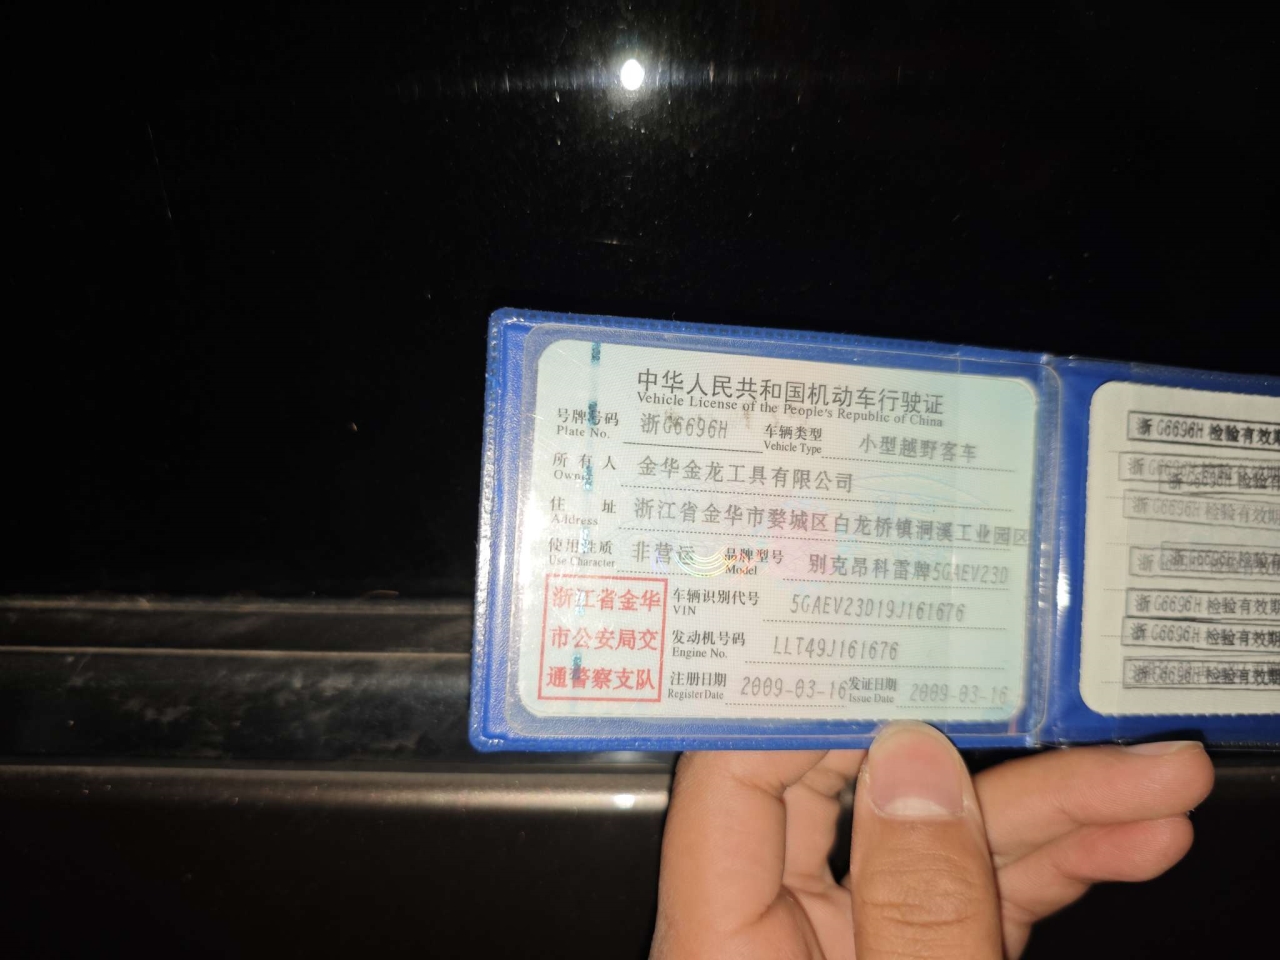 中华人民共和国机动车行驶证
Vehicle License of the People's Republic of China
号牌号码 浙G6696H 车辆类型 小型越野客车
Plate No. Vehicle Type
所有人 金华金龙工具有限公司
Owner
住址 浙江省金华市婺城区白龙桥镇洞溪工业园区
Address
使用性质 非营运 品牌型号 别克昂科雷牌5GAEV23D
Use Character Model
浙江省金华
市公安局交
通警察支队
车辆识别代号 5GAEV23D19J161676
VIN
发动机号码 LLT49J161676
Engine No.
注册日期 2009-03-16 发证日期 2009-03-16
Register Date Issue Date
浙G6696H 检验有效期
浙G6696H 检验有
浙G6696H 检验有效期
浙G6696H 检验有效
浙G6696H 检验有效期
浙G6696H 检验有效期
浙G6696H 检验有效期